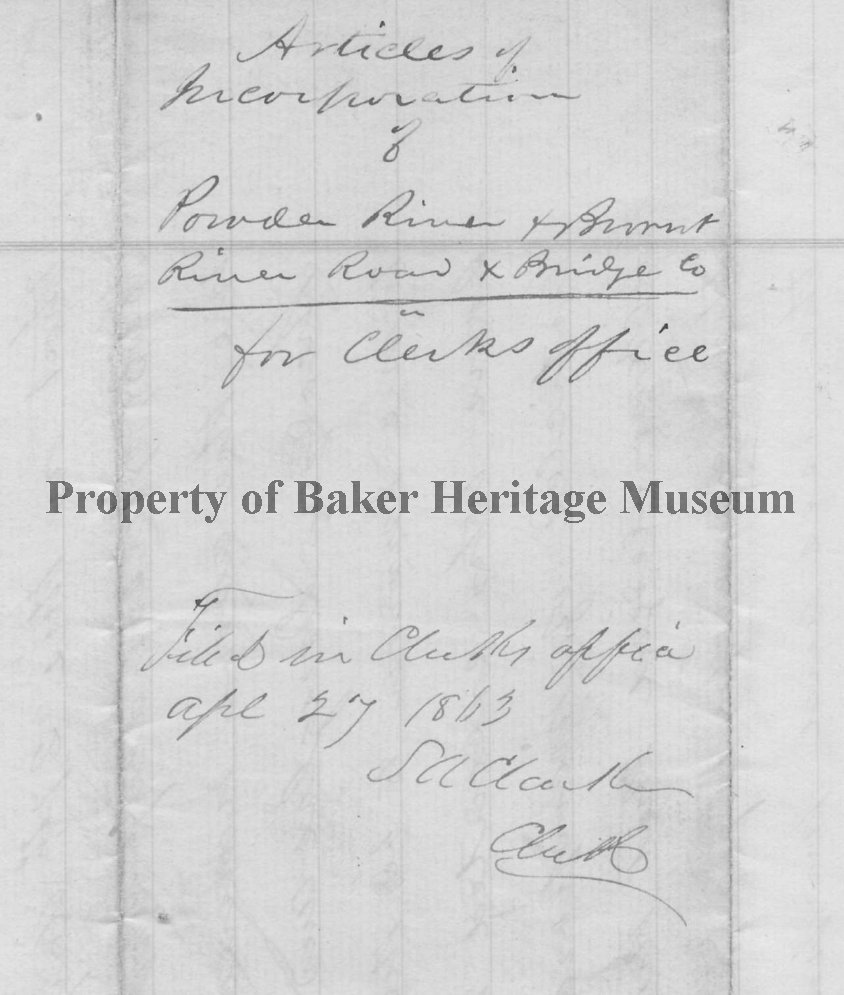 Articles of
Incorporation
of
Powder River & Burnt
River Road & Bridge Co
for Clerks office
Property of Baker Heritage Museum
Filed in Clerks office
Apl 27 1863
S A Clarke
Clerk